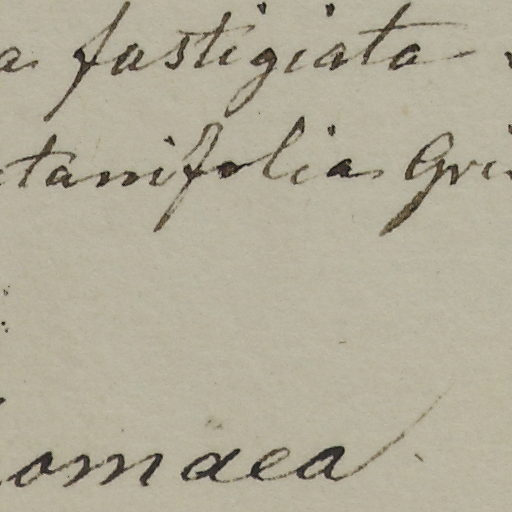 a fastigiata
tanifolia Gri
omaea